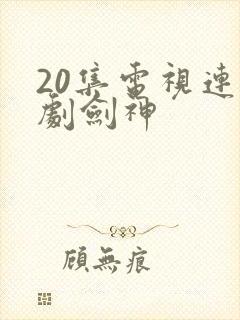 20集電視連
劇劍神
顧無痕